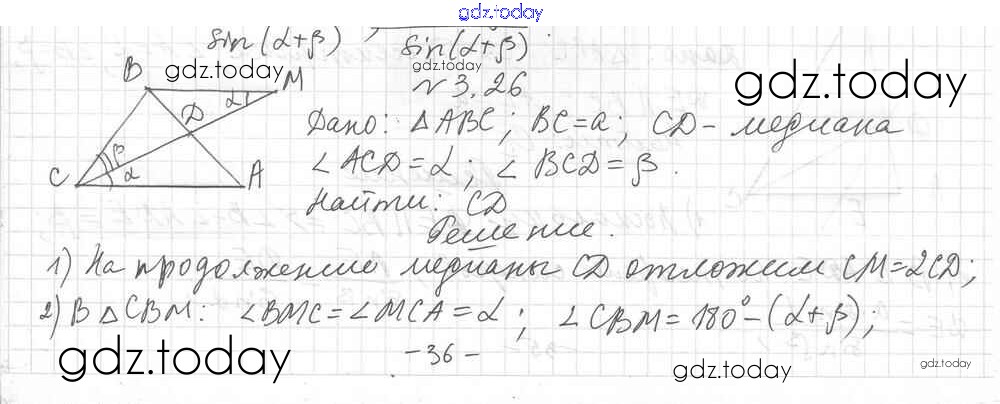 gdz.today
sin(α+β) sin(α+β).
gdz.today
gdz.today
gdz.today
№3.26
B M
α
D
β
α
C A
Дано: △ABC; BC=a; CD - медиана
∠ACD=α; ∠BCD=β.
Найти: CD
Решение.
1) На продолжение медианы CD отложим CM=2CD;
2) В △CBM: ∠BMC=∠MCA=α; ∠CBM=180°-(α+β);
-36-
gdz.today
gdz.today
gdz.today